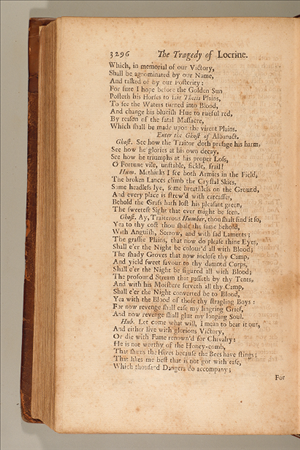 3296 The Tragedy of Locrine.
Which, in memorial of our Victory,
Shall be agnominated by our Name,
And talked of by our Posterity:
For sure I hope before the Golden Sun
Posteth his Horses to fair Thetis Plains,
To see the Waters turned into Blood,
And change his bluish Hue to rueful red,
By reason of the fatal Massacre,
Which shall be made upon the virent Plains.
Enter the Ghost of Albanact.
Ghost. See how the Traitor doth presage his harm,
See how he glories at his own decay,
See how he triumphs at his proper Loss,
O Fortune vile, unstable, fickle, frail!
Hum. Methinks I see both Armies in the Field,
The broken Lances climb the Crystal Skies,
Some headless lye, some breathless on the Ground,
And every place is strew'd with carcasses,
Behold the Grass hath lost his pleasant green,
The sweetest Sight that ever might be seen.
Ghost. Ay, Traiterous Humber, thou shalt find it so,
Yea to thy cost thou shalt the same behold,
With Anguish, Sorrow, and with sad Laments;
The grassie Plains, that now do please thine Eyes,
Shall e'er the Night be colour'd all with Blood;
The shady Groves that now inclose thy Camp,
And yield sweet savour to thy damned Corps,
Shall e'er the Night be figured all with Blood;
The profound Stream that passeth by thy Tents,
And with his Moisture serveth all thy Camp,
Shall e'er the Night converted be to Blood,
Yea with the Blood of those thy stragling Boys:
For now revenge shall ease my lingring Grief,
And now revenge shall glut my longing Soul.
Hub. Let come what will, I mean to bear it out,
And either live with glorious Victory,
Or die with Fame renown'd for Chivalry:
He is not worthy of the Honey-comb,
That shuns the Hives because the Bees have stings;
That likes me best that is not got with ease,
Which thousand Dangers do accompany;
For